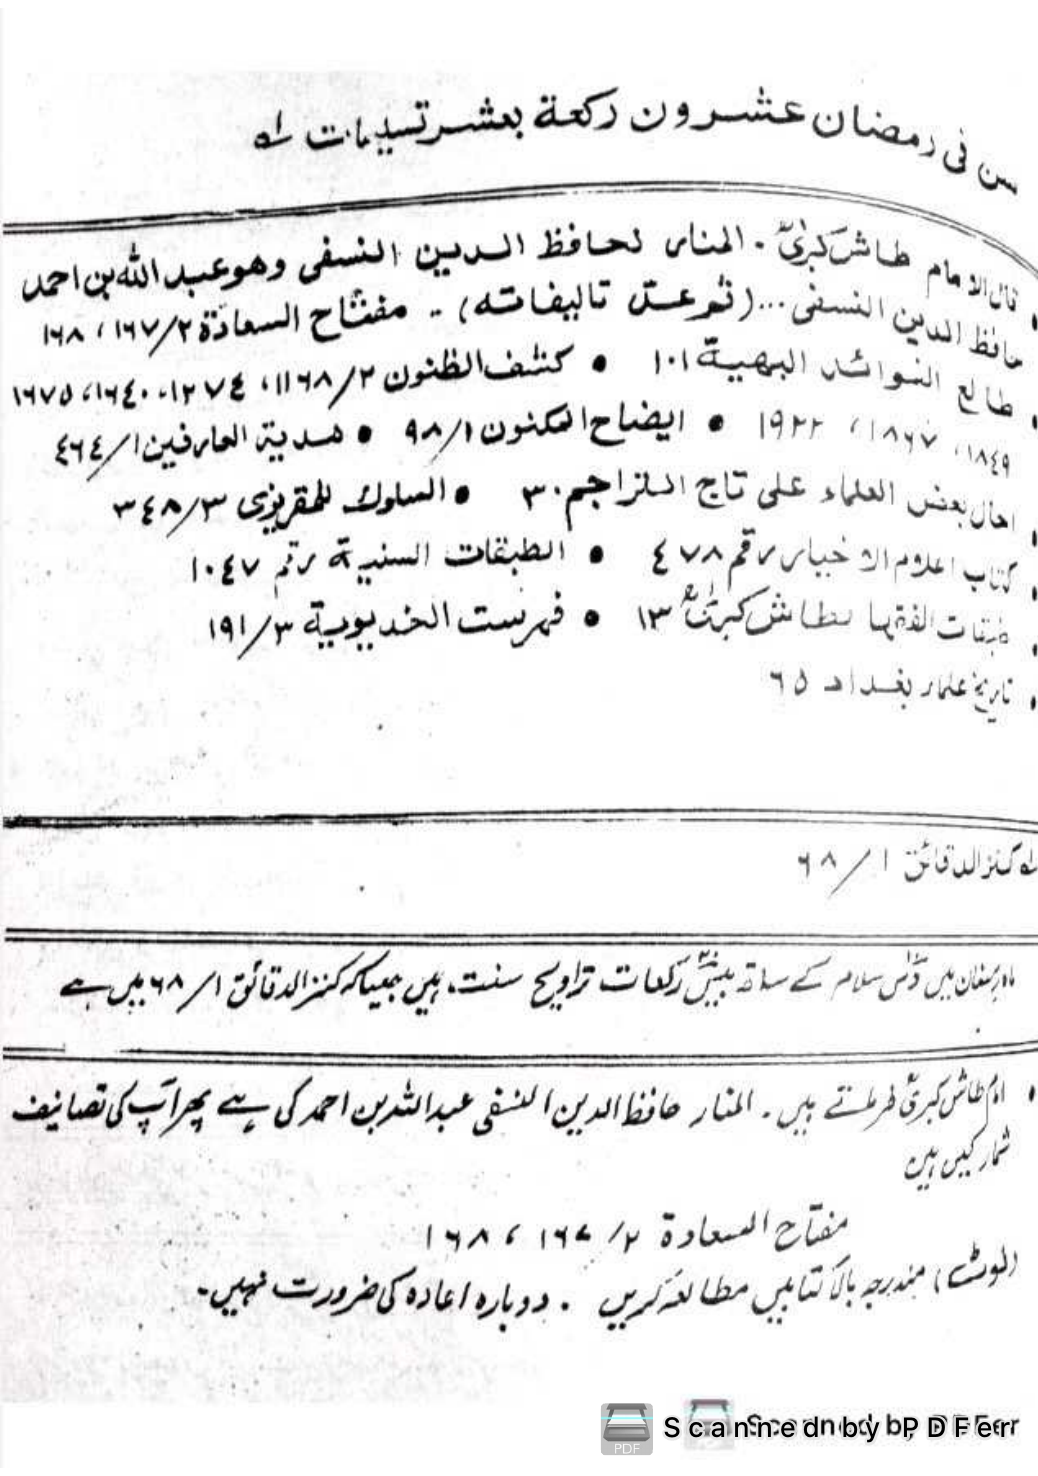 سن فی رمضان عشرون رکعة بعشر تسلیمات لہ
• قال الامام طاش کبریٰؒ - المنار لحافظ الدین النسفی وھو عبد اللہ بن احمد
حافظ الدین النسفی ...(ثم عدّ تالیفاتہ) - مفتاح السعادة ۲/۱۶۷، ۱۶۸
• طالع الفوائد البھیة ۱۰۱ • کشف الظنون ۲/۱۱۶۸، ۱۲۷٤، ۱٦٤۰، ۱٦۷۵
۱۸٤۹، ۱۸٦۷، ۱۹۲۲ • ایضاح المکنون ۱/۹۸ • ھدیة العارفین ۱/٤٦٤
بعض العلماء علی تاج التراجم ۳۰ • السلوک للمقریزی ۳/۳٤۸
• کتاب اعلام الاخیار رقم ٤۷۸ • الطبقات السنیة رقم ۱۰٤۷
• طبقات الفقہا لطاش کبریٰؒ ۱۳ • فہرست الخدیویة ۳/۱۹۱
• تاریخ علماء بغداد ٦۵
لہ کنز الدقائق ۱/٦۸
ماہ رمضان میں دسؔ سلام کے ساتھ بیسؔ رکعات تراویح سنت ہیں جیسا کہ کنز الدقائق ۱/٦۸ میں ہے
• امام طاش کبریٰؒ فرماتے ہیں - المنار حافظ الدین النسفی عبد اللہ بن احمد کی ہے پھر آپ کی تصانیف
شمار کیں ہیں
مفتاح السعادة ۲/۱٦۷، ۱٦۸
(نوٹ) مندرجہ بالا کتابیں مطالعہ کریں - دوبارہ اعادہ کی ضرورت نہیں -
Scanned by PDFer